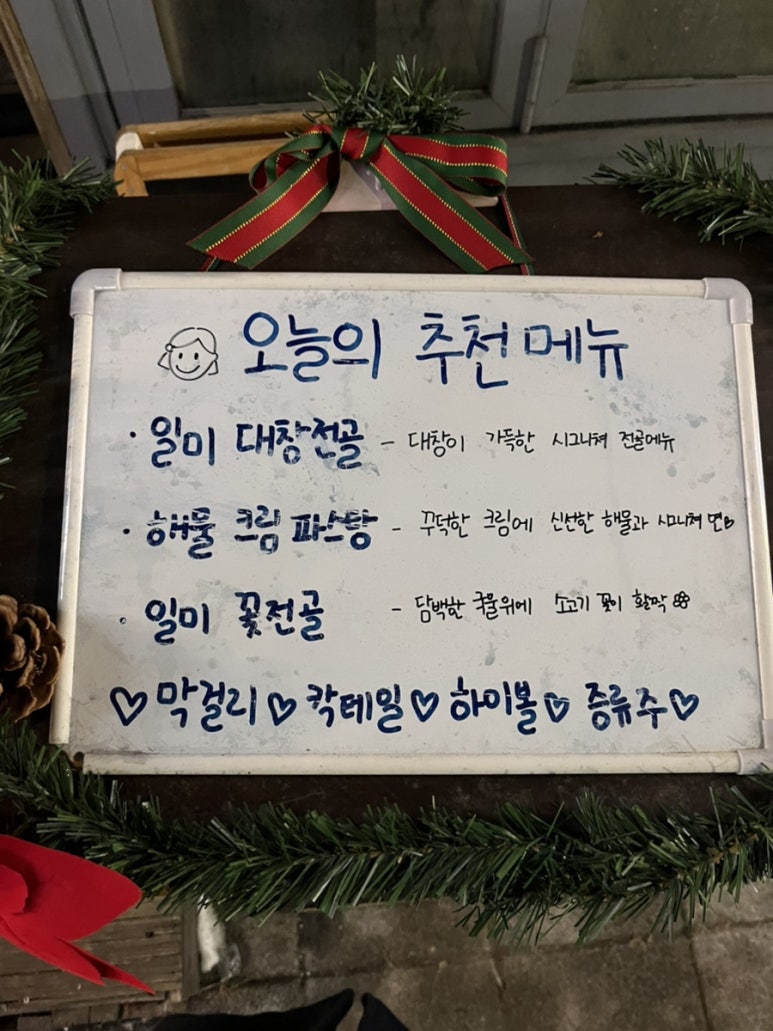 오늘의 추천메뉴
· 일미 대창전골 - 대창이 가득한 시그니쳐 전골메뉴
· 해물 크림 파스탕 - 꾸덕한 크림에 신선한 해물과 시그니쳐 면♡
· 일미 꽃전골 - 담백한 국물위에 소고기 꽃이 활짝
♡막걸리♡칵테일♡하이볼♡증류주♡